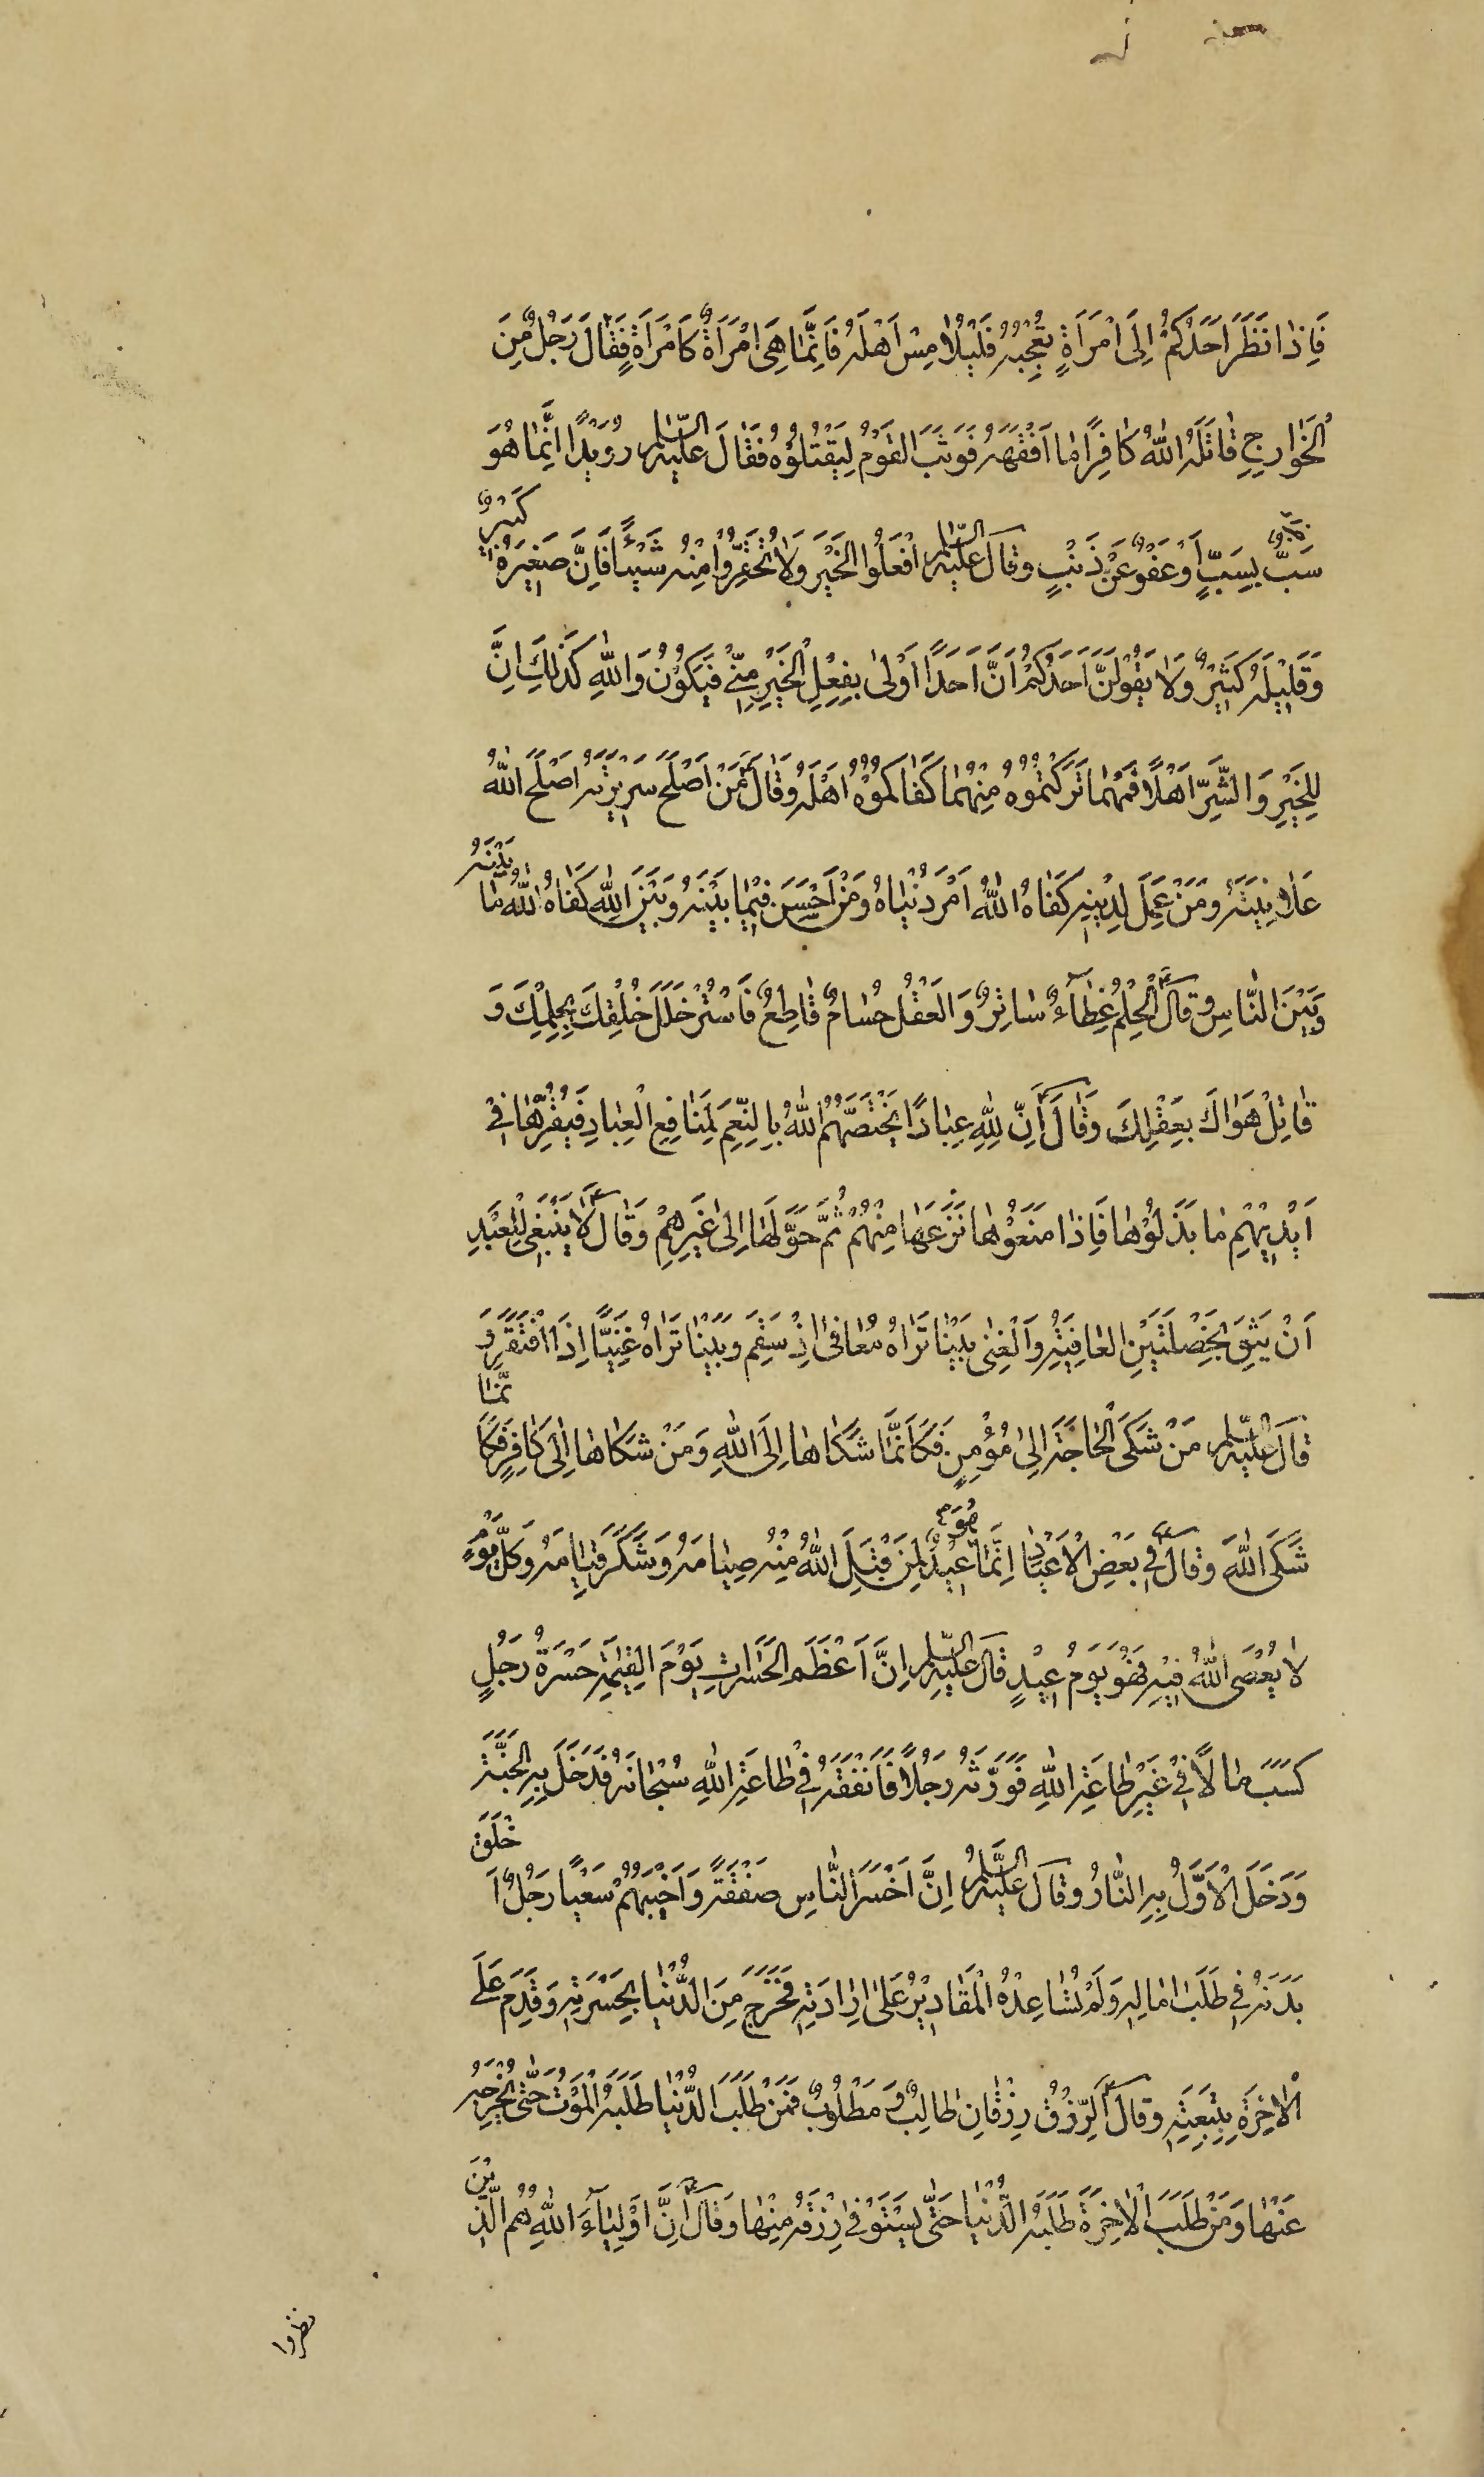 فَاِذا نَظَرَ اَحَدُكُمْ اِلَى امْرَاَةٍ تُعْجِبُهُ فَلْيُلامِسْ اَهْلَهُ فَاِنَّمَا هِىَ امْرَاَةٌ كَامْرَاَةٍ فَقَالَ رَجُلٌ مِنَ
الْخَوارِجِ قاتَلَهُ اللهُ كافِرًا ما اَفْقَهَهُ فَوَثَبَ القَوْمُ لِيَقْتُلُوهُ فَقَالَ عليه السلام رُوَيْدًا اِنَّمَا هُوَ
سَبٌّ بِسَبٍّ اَوْ عَفْوٌ عَنْ ذَنْبٍ وقالَ عليه السلام افْعَلُوا الخَيْرَ وَلا تُحَقِّرُوا مِنْهُ شَيْئًا فَاِنَّ صَغِيرَهُ كَبيرٌ
وَقَلِيلَهُ كَثِيرٌ وَلا يَقُولَنَّ اَحَدُكُمْ اَنَّ اَحَدًا اَوْلى بِفِعْلِ الْخَيْرِ مِنّى فَيَكُونُ وَاللهِ كَذلِكَ اِنَّ
لِلْخَيْرِ وَالشَّرِّ اَهْلًا فَمَهْما تَرَكْتُمُوهُ مِنْهُما كَفاكُمُوهُ اَهْلُهُ وَقالَ ع مَنْ اَصْلَحَ سَرِيرَتَهُ اَصْلَحَ اللهُ
عَلانِيَتَهُ وَمَنْ عَمِلَ لِدِينِهِ كَفاهُ اللهُ اَمْرَ دُنْياهُ وَمَنْ اَحْسَنَ فِيما بَيْنَهُ وَبَيْنَ اللهِ كَفاهُ اللهُ ما بَيْنَهُ
وَبَيْنَ النّاسِ وقالَ ع الْحِلْمُ غِطاءٌ ساتِرٌ وَالعَقْلُ حُسامٌ قاطِعٌ فَاسْتُرْ خَلَلَ خُلْقِكَ بِحِلْمِكَ وَ
قاتِلْ هَواكَ بِعَقْلِكَ وَقالَ ع اِنَّ لِلّهِ عِبادًا يَخْتَصُّهُمُ اللهُ بِالنِّعَمِ لِمَنافِعِ الْعِبادِ فَيُقِرُّها فى
اَيْدِيهِمْ ما بَذَلُوها فَاِذا مَنَعُوها نَزَعَها مِنْهُمْ ثُمَّ حَوَّلَها اِلى غَيْرِهِمْ وَقالَ ع لا يَنْبَغى لِلْعَبْدِ
اَنْ يَثِقَ بِخَصْلَتَيْنِ العافِيَةِ وَالْغِنى بَيْنا تَراهُ مُعافىً اِذْ سَقِمَ وَبَيْنا تَراهُ غَنِيًّا اِذِ افْتَقَرَ وَ
قالَ عليه السلام مَنْ شَكَى الْحاجَةَ اِلى مُؤْمِنٍ فَكَاَنَّما شَكاها اِلَى اللهِ وَمَنْ شَكاها اِلى كافِرٍ فَكَانَّما
شَكَى اللهَ وقالَ ع فى بَعْضِ الْاَعْيادِ اِنَّما هُوَ عِيدٌ لِمَنْ قَبِلَ اللهُ مِنْهُ صِيامَهُ وَشَكَرَ قِيامَهُ وَكُلُّ يَوْمٍ
لا يُعْصَى اللهُ فِيهِ فَهُوَ يَوْمُ عِيدٍ قالَ عليه السلام اِنَّ اَعْظَمَ الحَسَراتِ يَوْمَ القِيمَةِ حَسْرَةُ رَجُلٍ
كَسَبَ مالًا فى غَيْرِ طاعَةِ اللهِ فَوَرَّثَهُ رَجُلًا فَاَنْفَقَهُ فى طاعَةِ اللهِ سُبْحانَهُ فَدَخَلَ بِهِ الجَنَّةَ
وَدَخَلَ الْاَوَّلُ بِهِ النَّارَ وَقالَ عليه السلام اِنَّ اَخْسَرَ النّاسِ صَفْقَةً وَاَخْيَبَهُمْ سَعْيًا رَجُلٌ اَخْلَقَ
بَدَنَهُ فى طَلَبِ امالِهِ وَلَمْ تُساعِدْهُ الْمَقادِيرُ عَلى اِرادَتِهِ فَخَرَجَ مِنَ الدُّنْيا بِحَسْرَتِهِ وَقَدِمَ عَلَى
الْاخِرَةِ بِتَبِعَتِهِ وقالَ ع اَلرِّزْقُ رِزْقانِ طالِبٌ وَمَطْلُوبٌ فَمَنْ طَلَبَ الدُّنْيا طَلَبَهُ الْمَوْتُ حَتّى يُخْرِجَهُ
عَنْها وَمَنْ طَلَبَ الْاخِرَةَ طَلَبَتْهُ الدُّنْيا حَتّى يَسْتَوْفى رِزْقَهُ مِنْها وَقالَ ع اِنَّ اَوْلِياءَ اللهِ هُمُ الَّذينَ
نظروا